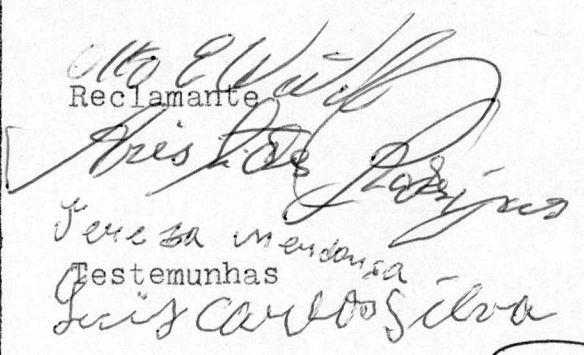 Otto E
Reclamante
Aris Rodrigues
Tereza Mendonsa
Testemunhas
Luis Carlos Silva